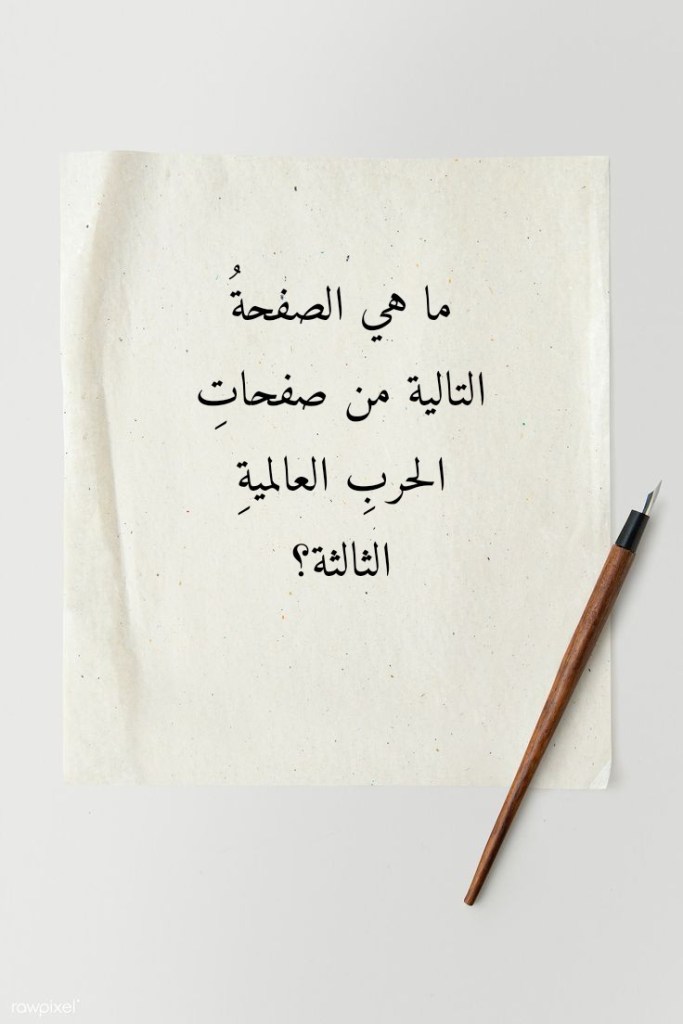 ما هي الصفحةُ
التالية من صفحاتِ
الحربِ العالميةِ
الثالثة؟
rawpixel